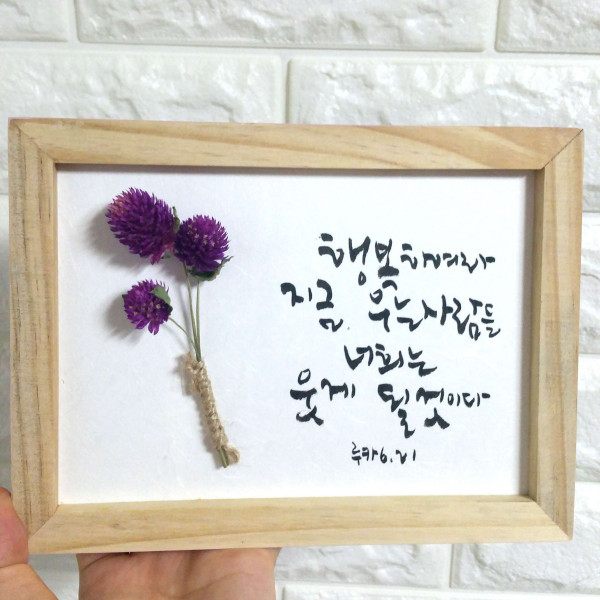 행복하여라
지금, 우는 사람들
너희는
웃게 될 것이다
루카 6.21